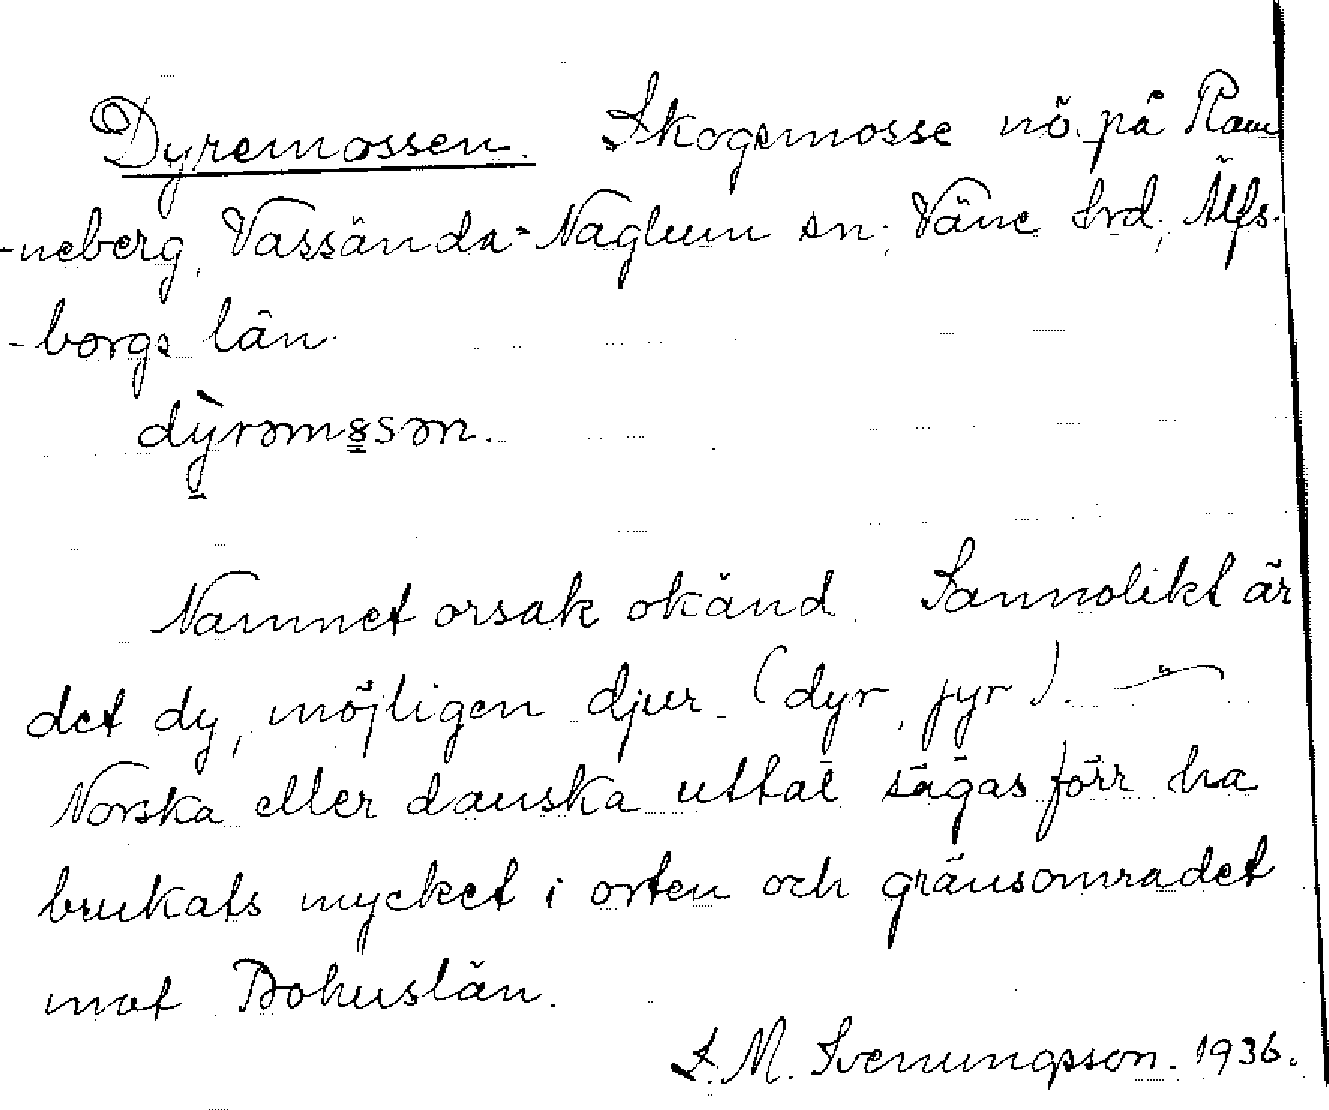 Dyremossen. Skogsmosse nö. på Ram
-neberg, Vassända-Naglum sn; Väne hrd; Älfs-
-borgs län.
dỳrəm8sən.
Namnet orsak okänd. Sannolikt är
det dy, möjligen djur (dyr, jyr). —
Norska eller danska uttal sägas förr ha
brukats mycket i orten och gränsområdet
mot Bohuslän.
S. M. Svenungsson. 1936.